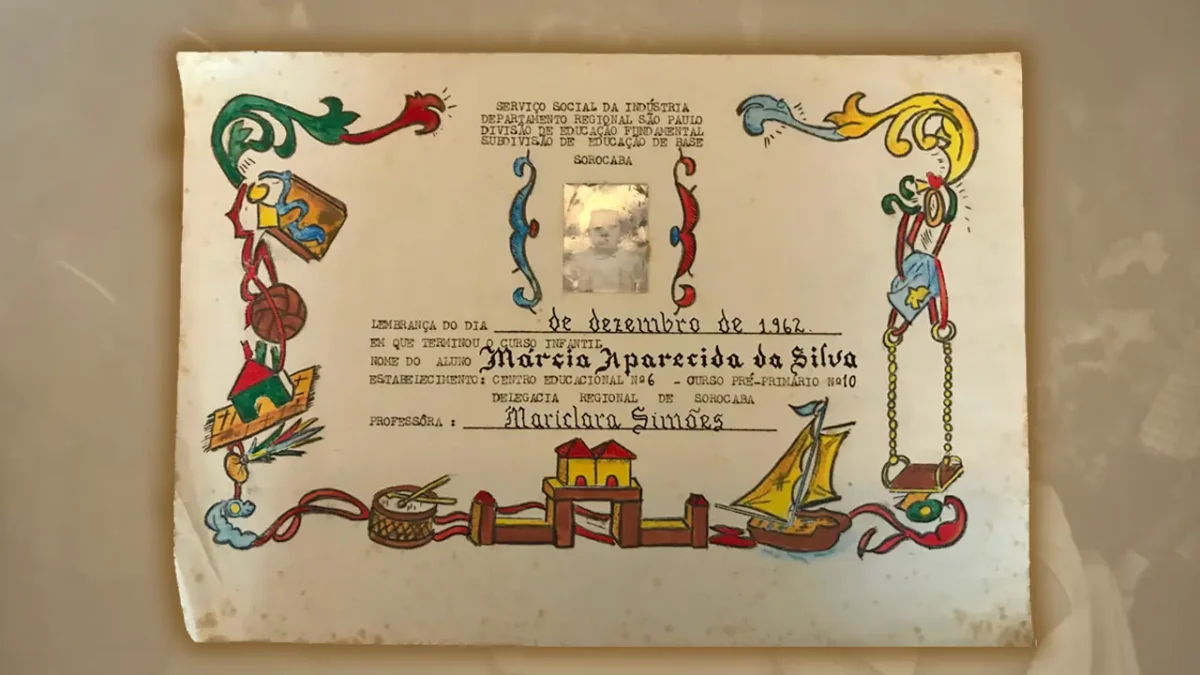 SERVIÇO SOCIAL DA INDÚSTRIA
DEPARTAMENTO REGIONAL SÃO PAULO
DIVISÃO DE EDUCAÇÃO FUNDAMENTAL
SUBDIVISÃO DE EDUCAÇÃO DE BASE
SOROCABA
LEMBRANÇA DO DIA de dezembro de 1962.
EM QUE TERMINOU O CURSO INFANTIL
NOME DO ALUNO Márcia Aparecida da Silva
ESTABELECIMENTO: CENTRO EDUCACIONAL Nº6 - CURSO PRÉ-PRIMÁRIO Nº10
DELEGACIA REGIONAL DE SOROCABA
PROFESSÔRA: Mariclara Simões